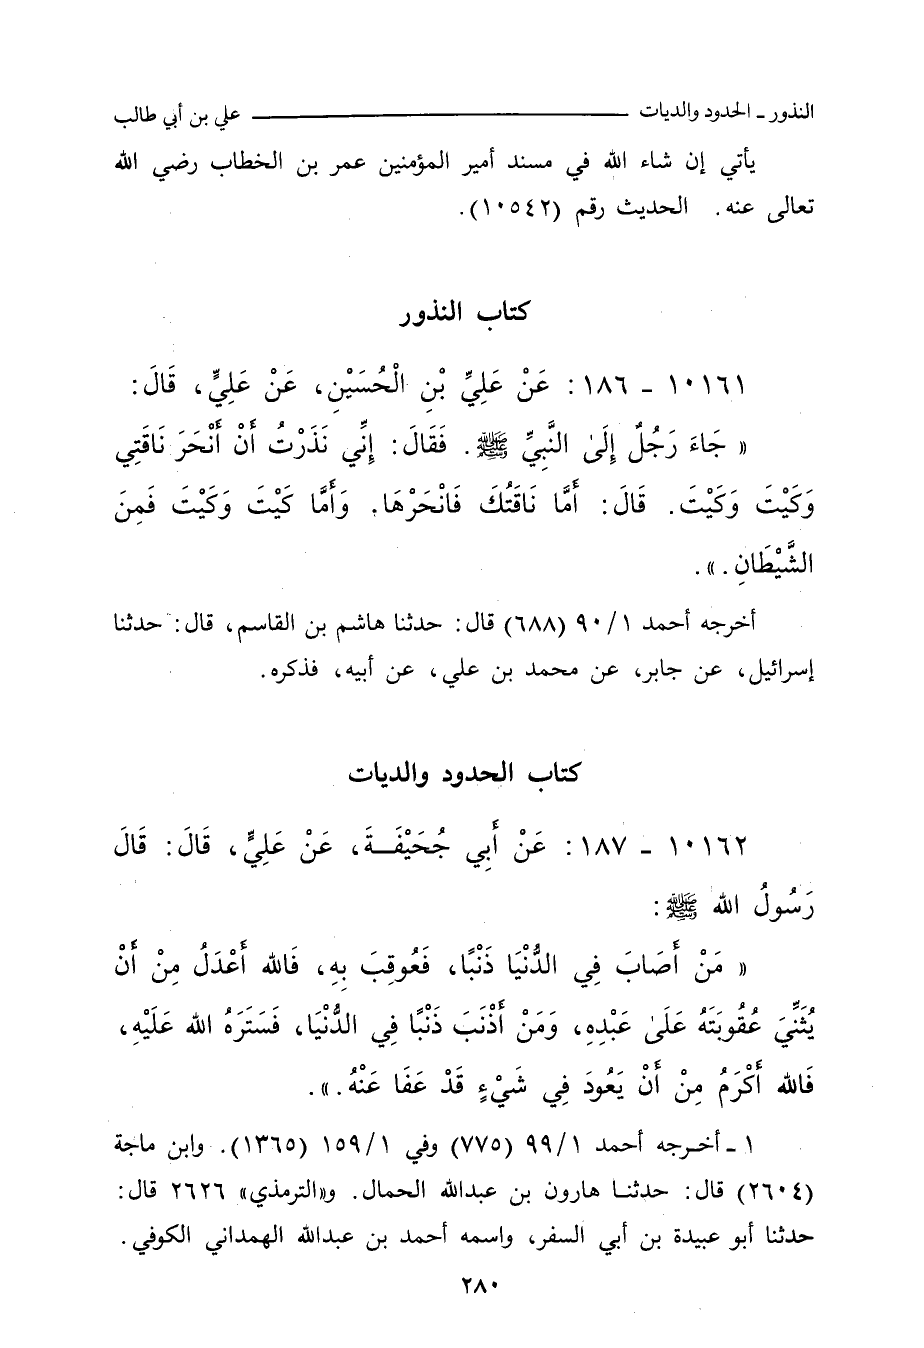 النذور ـ الحدود والديات ــــــــــــ علي بن أبي طالب
يأتي إن شاء الله في مسند أمير المؤمنين عمر بن الخطاب رضي الله
تعالى عنه. الحديث رقم (١٠٥٤٢).
كتاب النذور
١٠١٦١ ـ ١٨٦ : عَنْ عَلِيِّ بْنِ الْحُسَيْنِ، عَنْ عَلِيٍّ، قَالَ:
« جَاءَ رَجُلٌ إِلَىٰ النَّبِيِّ ﷺ . فَقَالَ: إِنِّي نَذَرْتُ أَنْ أَنْحَرَ نَاقَتِي
وَكَيْتَ وَكَيْتَ. قَالَ: أَمَّا نَاقَتُكَ فَانْحَرْهَا. وَأَمَّا كَيْتَ وَكَيْتَ فَمِنَ
الشَّيْطَانِ . » .
أخرجه أحمد ٩٠/١ (٦٨٨) قال: حدثنا هاشم بن القاسم، قال: حدثنا
إسرائيل، عن جابر، عن محمد بن علي، عن أبيه، فذكره.
كتاب الحدود والديات
١٠١٦٢ ـ ١٨٧ : عَنْ أَبِي جُحَيْفَـةَ، عَنْ عَلِيٍّ، قَالَ: قَالَ
رَسُولُ الله ﷺ :
« مَنْ أَصَابَ فِي الدُّنْيَا ذَنْبًا، فَعُوقِبَ بِهِ، فَالله أَعْدَلُ مِنْ أَنْ
يُثَنِّيَ عُقُوبَتَهُ عَلَىٰ عَبْدِهِ، وَمَنْ أَذْنَبَ ذَنْبًا فِي الدُّنْيَا، فَسَتَرَهُ الله عَلَيْهِ،
فَالله أَكْرَمُ مِنْ أَنْ يَعُودَ فِي شَيْءٍ قَدْ عَفَا عَنْهُ . » .
١ ـ أخـرجه أحمد ٩٩/١ (٧٧٥) وفي ١٥٩/١ (١٣٦٥). وابن ماجة
(٢٦٠٤) قال: حدثنـا هارون بن عبدالله الحمال. و«الترمذي» ٢٦٢٦ قال:
حدثنا أبو عبيدة بن أبي السفر، واسمه أحمد بن عبدالله الهمداني الكوفي.
٢٨٠